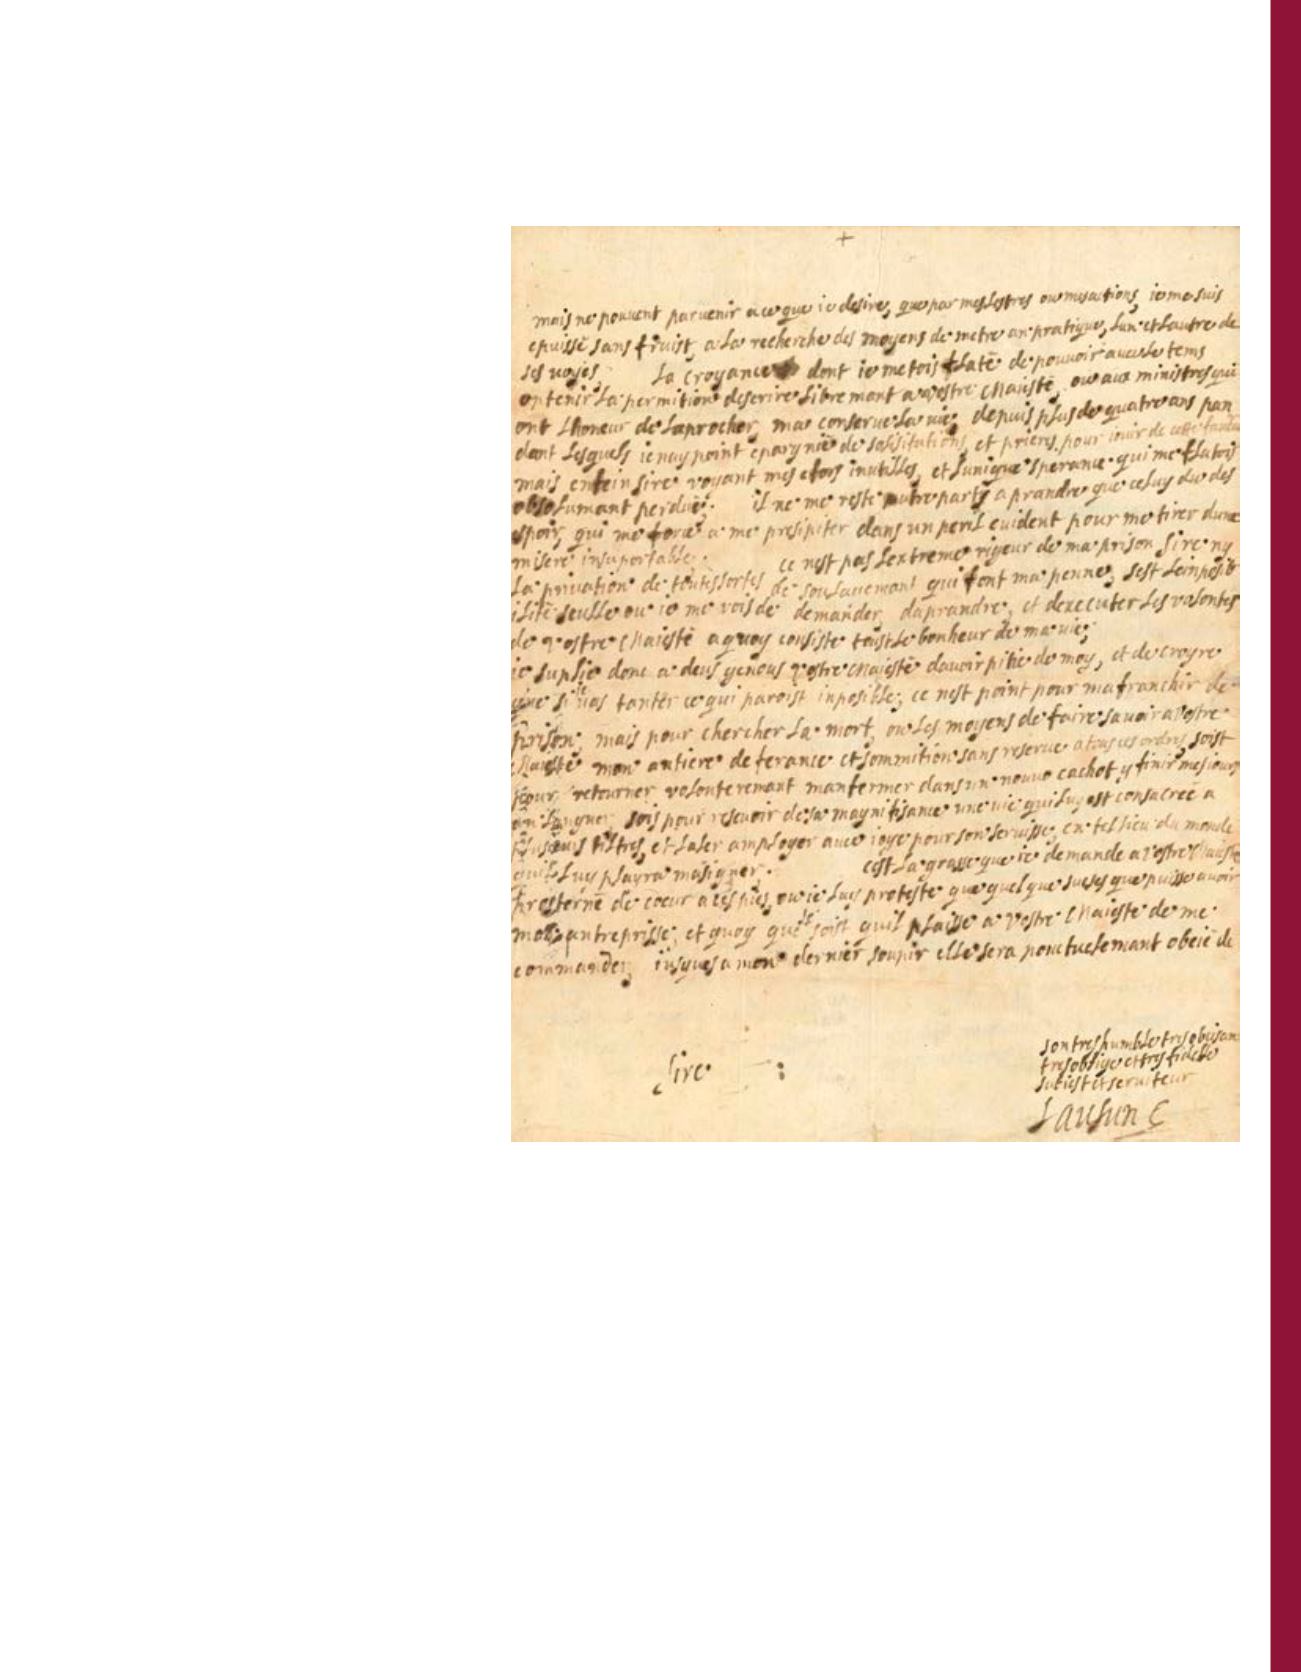 mais ne pouuent paruenir a ce que ie desire, que par mes lestres ou mes actions, ie me suis
epuissé sans fruist, a la recherche des moyens de metre an pratique, lun et lautre de
ses voyes La croyance dont ie metois flaté de pouuoir auec le tems
optenir la permition descrire libremant a vostre Maiesté, ou aux ministres qui
ont lhoneur de laprocher, ma conserué la vie, depuis plus de quatre ans pan
dant lesquels ie nay point epargnié de solisitations, et prieres, pour iouir de cette
mais enfein sire voyant mes efors inutilles, et lunique sperance qui me flatois
absolumant perdue; il ne me reste autre party a prandre que celuy du des
espoir, qui me force a me presipiter dans un peril euident pour me tirer dune
misere insuportable; ce nest pas lextreme rigeur de ma prison sire ny
la priuation de toutes sortes de soulauemant qui font ma penne, sest limposib
ilité seulle ou ie me vois de demander, daprandre, et dexecuter les volontes
de vostre Maiesté a quoy consiste toust le bonheur de ma vie;
ie suplie donc a deus genous vostre Maiesté dauoir pitie de moy, et de croyre
que si ie vos tanter ce qui paroist inposible; ce nest point pour mafranchir de
prison, mais pour chercher la mort, ou les moyens de faire sauoir a Vostre
Maiesté mon antiere deferance et sommition sans reserue a tous ces ordres, soist
pour retourner volonteremant manfermer dans un nouuo cachot y finir mes iours
an langeur, sois pour reseuoir de sa magnifisance une vie qui luy est consacreé a
plusieurs tiltres, et laler amployer auec ioye pour son seruisse, en tel lieu du monde
quil luy playra masigner. cest la grasse que ie demande a Vostre Maieste
prosterné de coeur a ces pies, ou ie luy proteste que quelque suceses que puisse auoir
mon antreprisse; et quoy que ce soist quil plaisse a Vostre Maieste de me
commander, iusques a mon dernier soupir elle sera ponctuelemant obeié de
Sire
son tres humble tres obeisan
tres oblige et tres fidelle
suiest et seruiteur
Lausun C